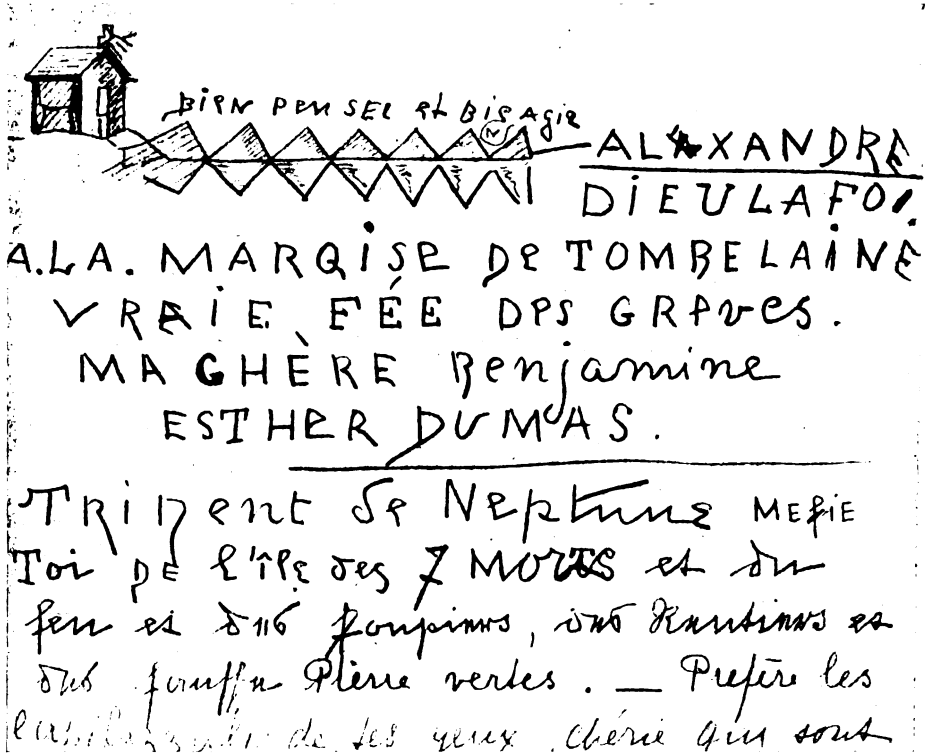 BIEN PENSEE et BIEN Agie
ALEXANDRE
DIEULAFOI.
A.LA. MARQISE De TOMBELAINE
VRAIE FÉE DES GRAVES.
MA CHÈRE Benjamine
ESTHER DUMAS.
TRIDENT de Neptune MEFIE
Toi DE l'île des 7 MORTS et du
feu et des et
des Pierre vertes. — Préfère les
de tes yeux chérie qui sont